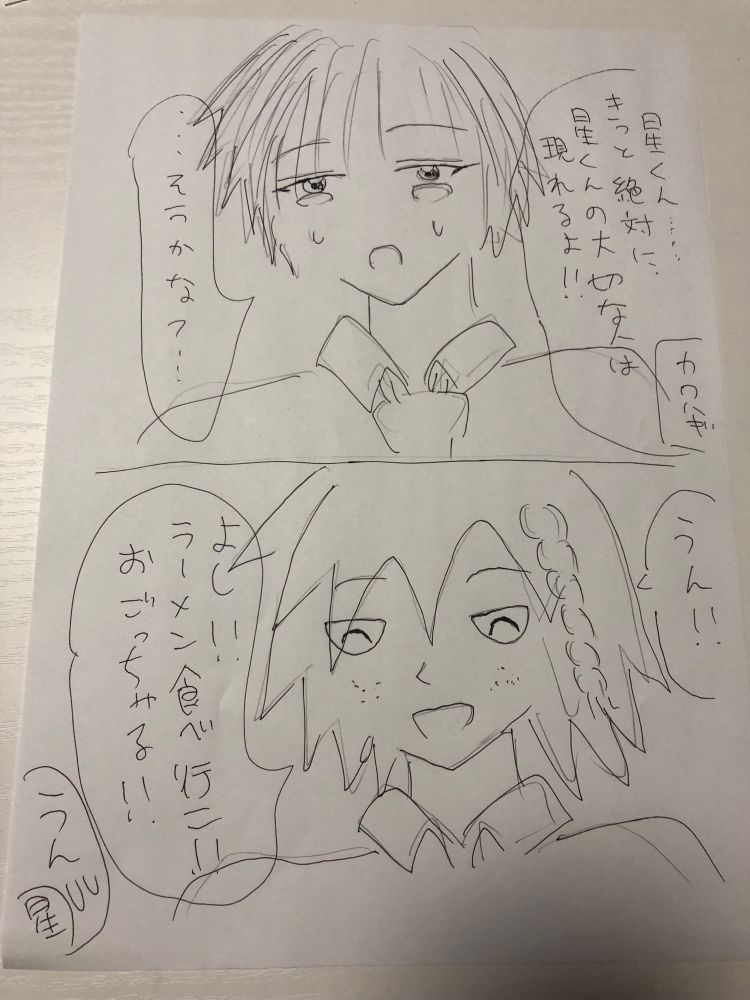 星くん……
きっと絶対に、
星くんの大切な人は
現れるよ!!
カワハギ
…そうかなァ…
うん!!
よし!!
ラーメン食べ行こ!!
おごっちゃる!!
うん
星